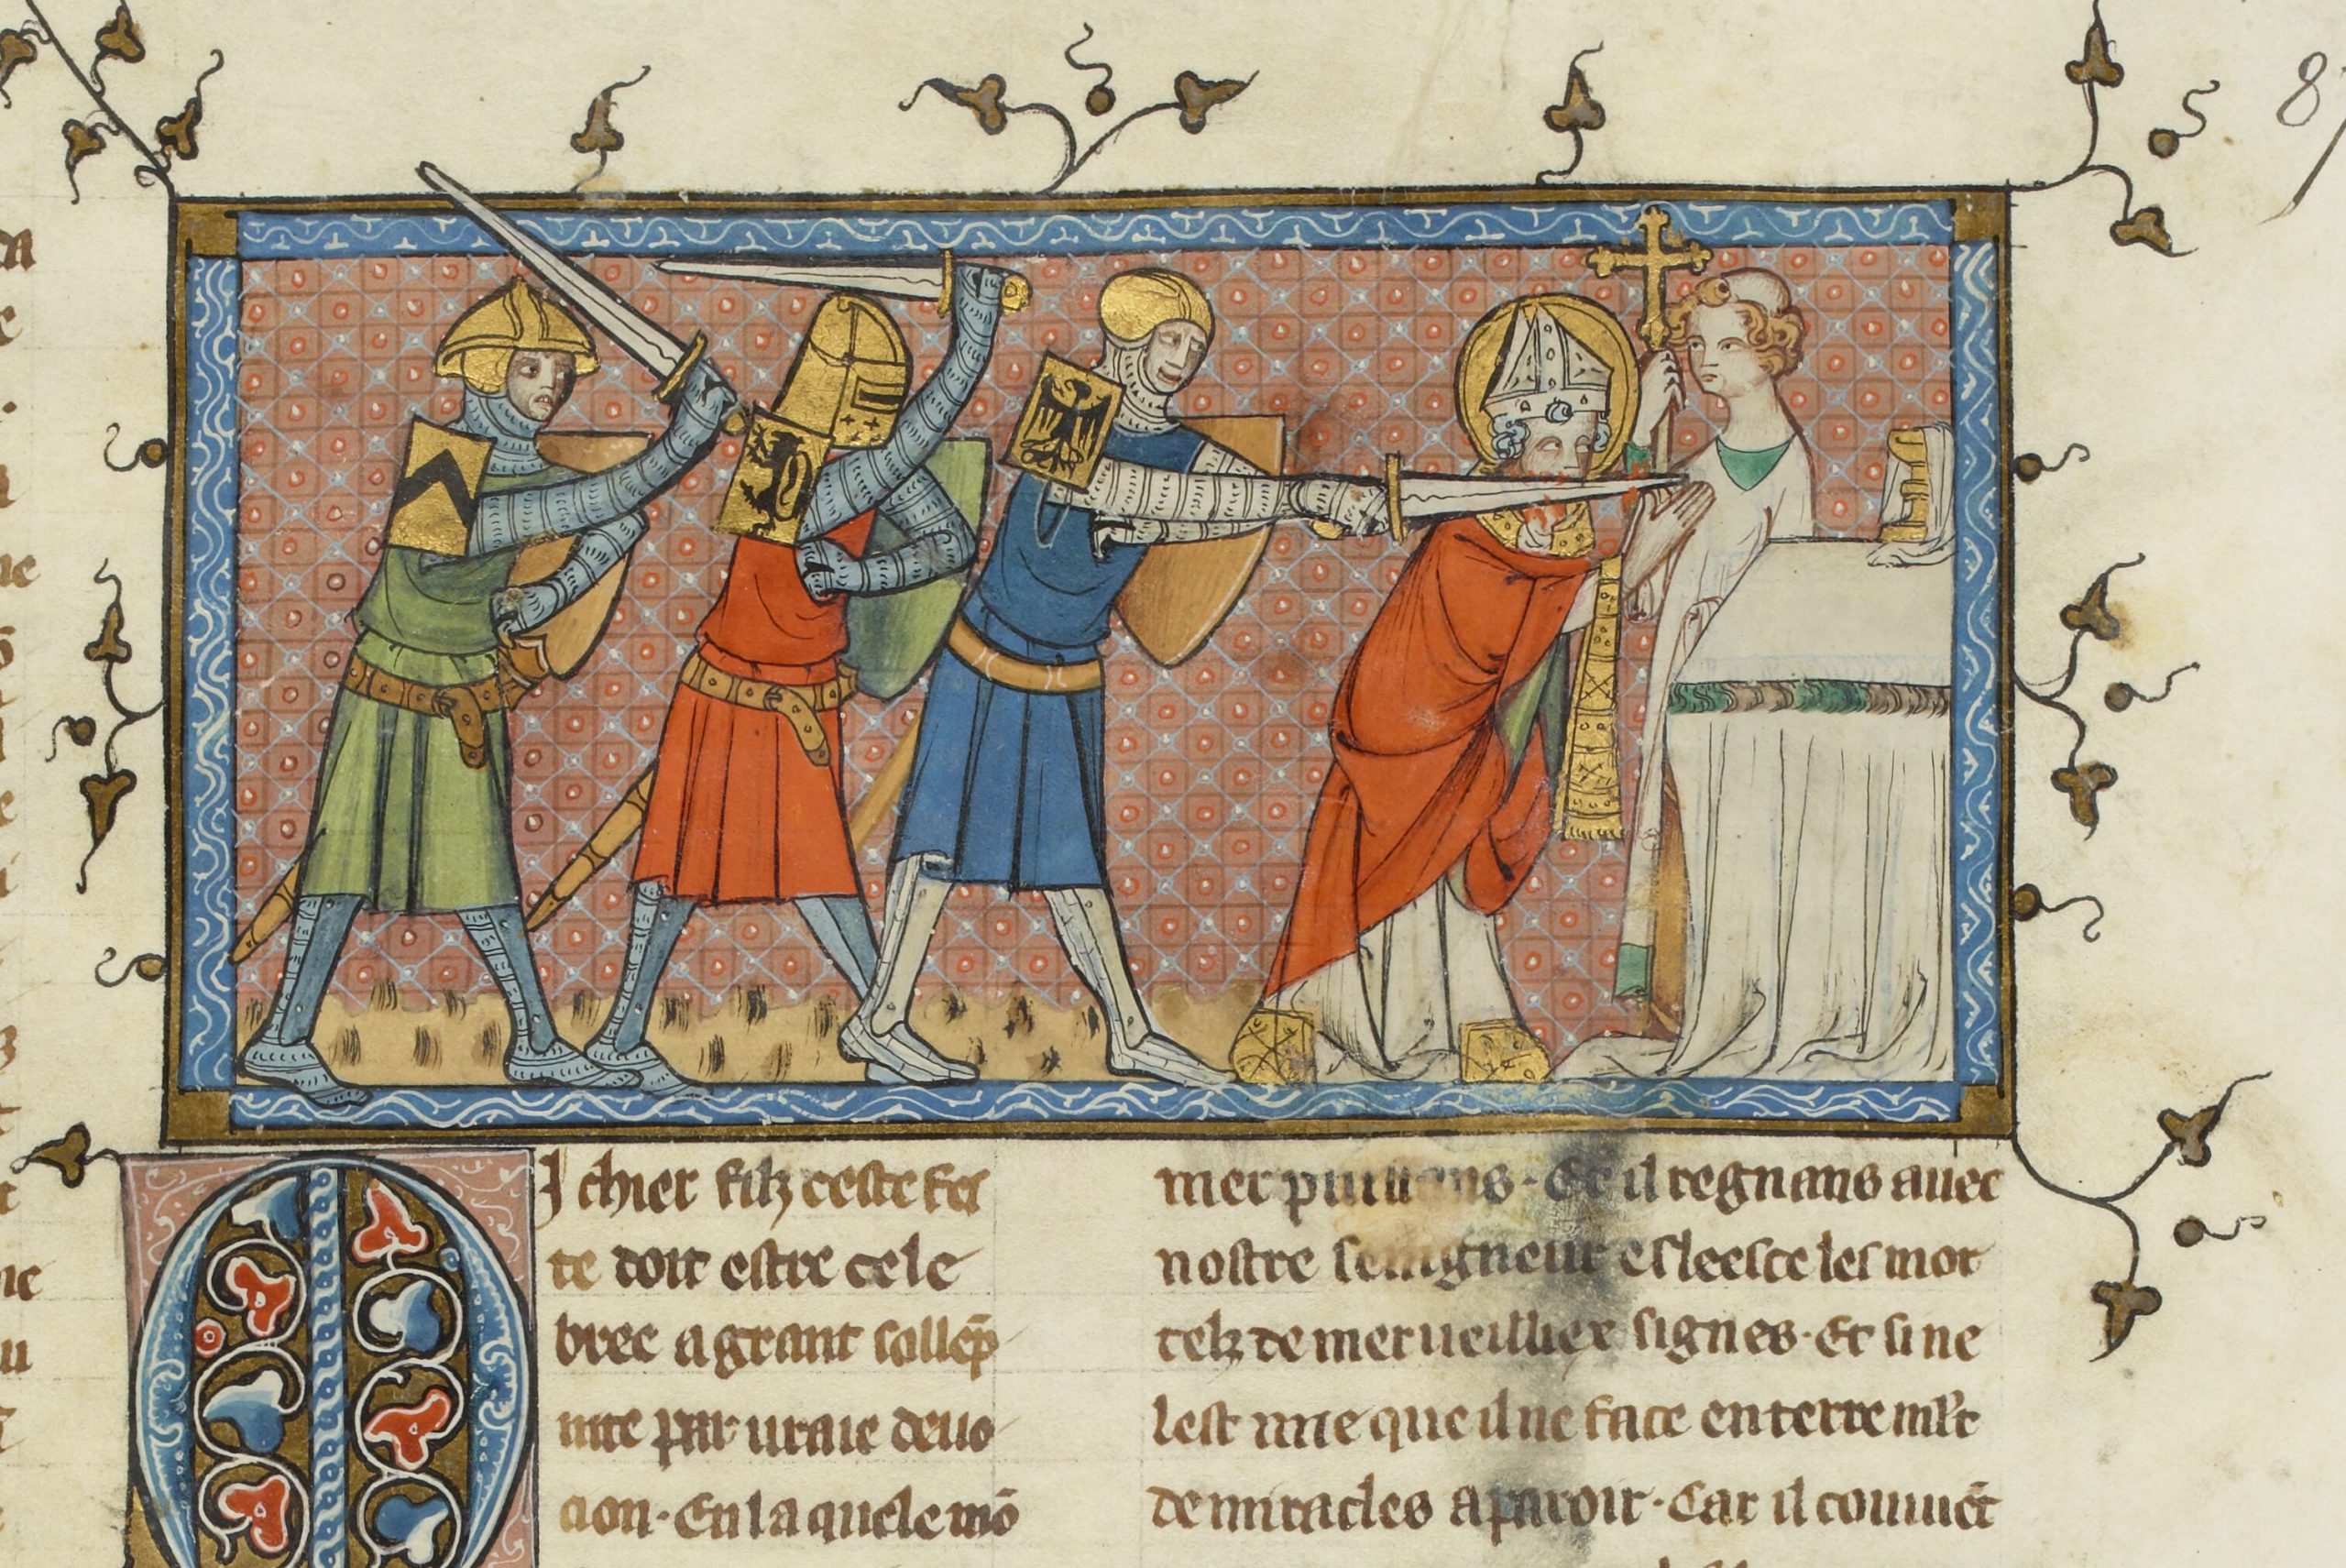 87
I chier filz ceste fes
te doit estre cele
bree a grant sollēp
nite par uraie deuo
cion. En la quele mō
mer puissans. Et il regnans auec
nostre seingneur esleesce les mor
telz de merueilliex signes. Et si ne
lest mie que il ne face en terre
de miracles aparoir. Car il couuiēt